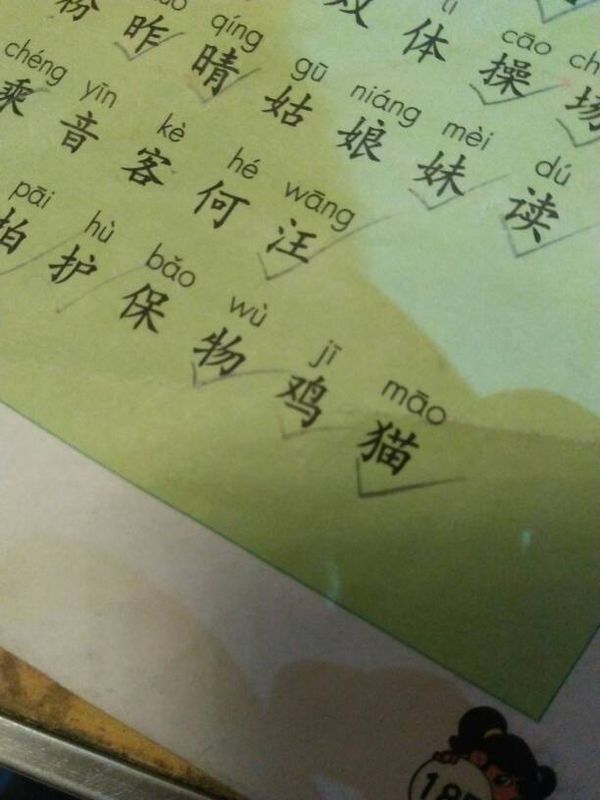 cāo
体 操 场
qíng gū niáng mèi dú
粉 昨 晴 姑 娘 妹 读
chéng yīn kè hé wāng
乘 音 客 何 汪
pāi hù bǎo wù jī māo
拍 护 保 物 鸡 猫